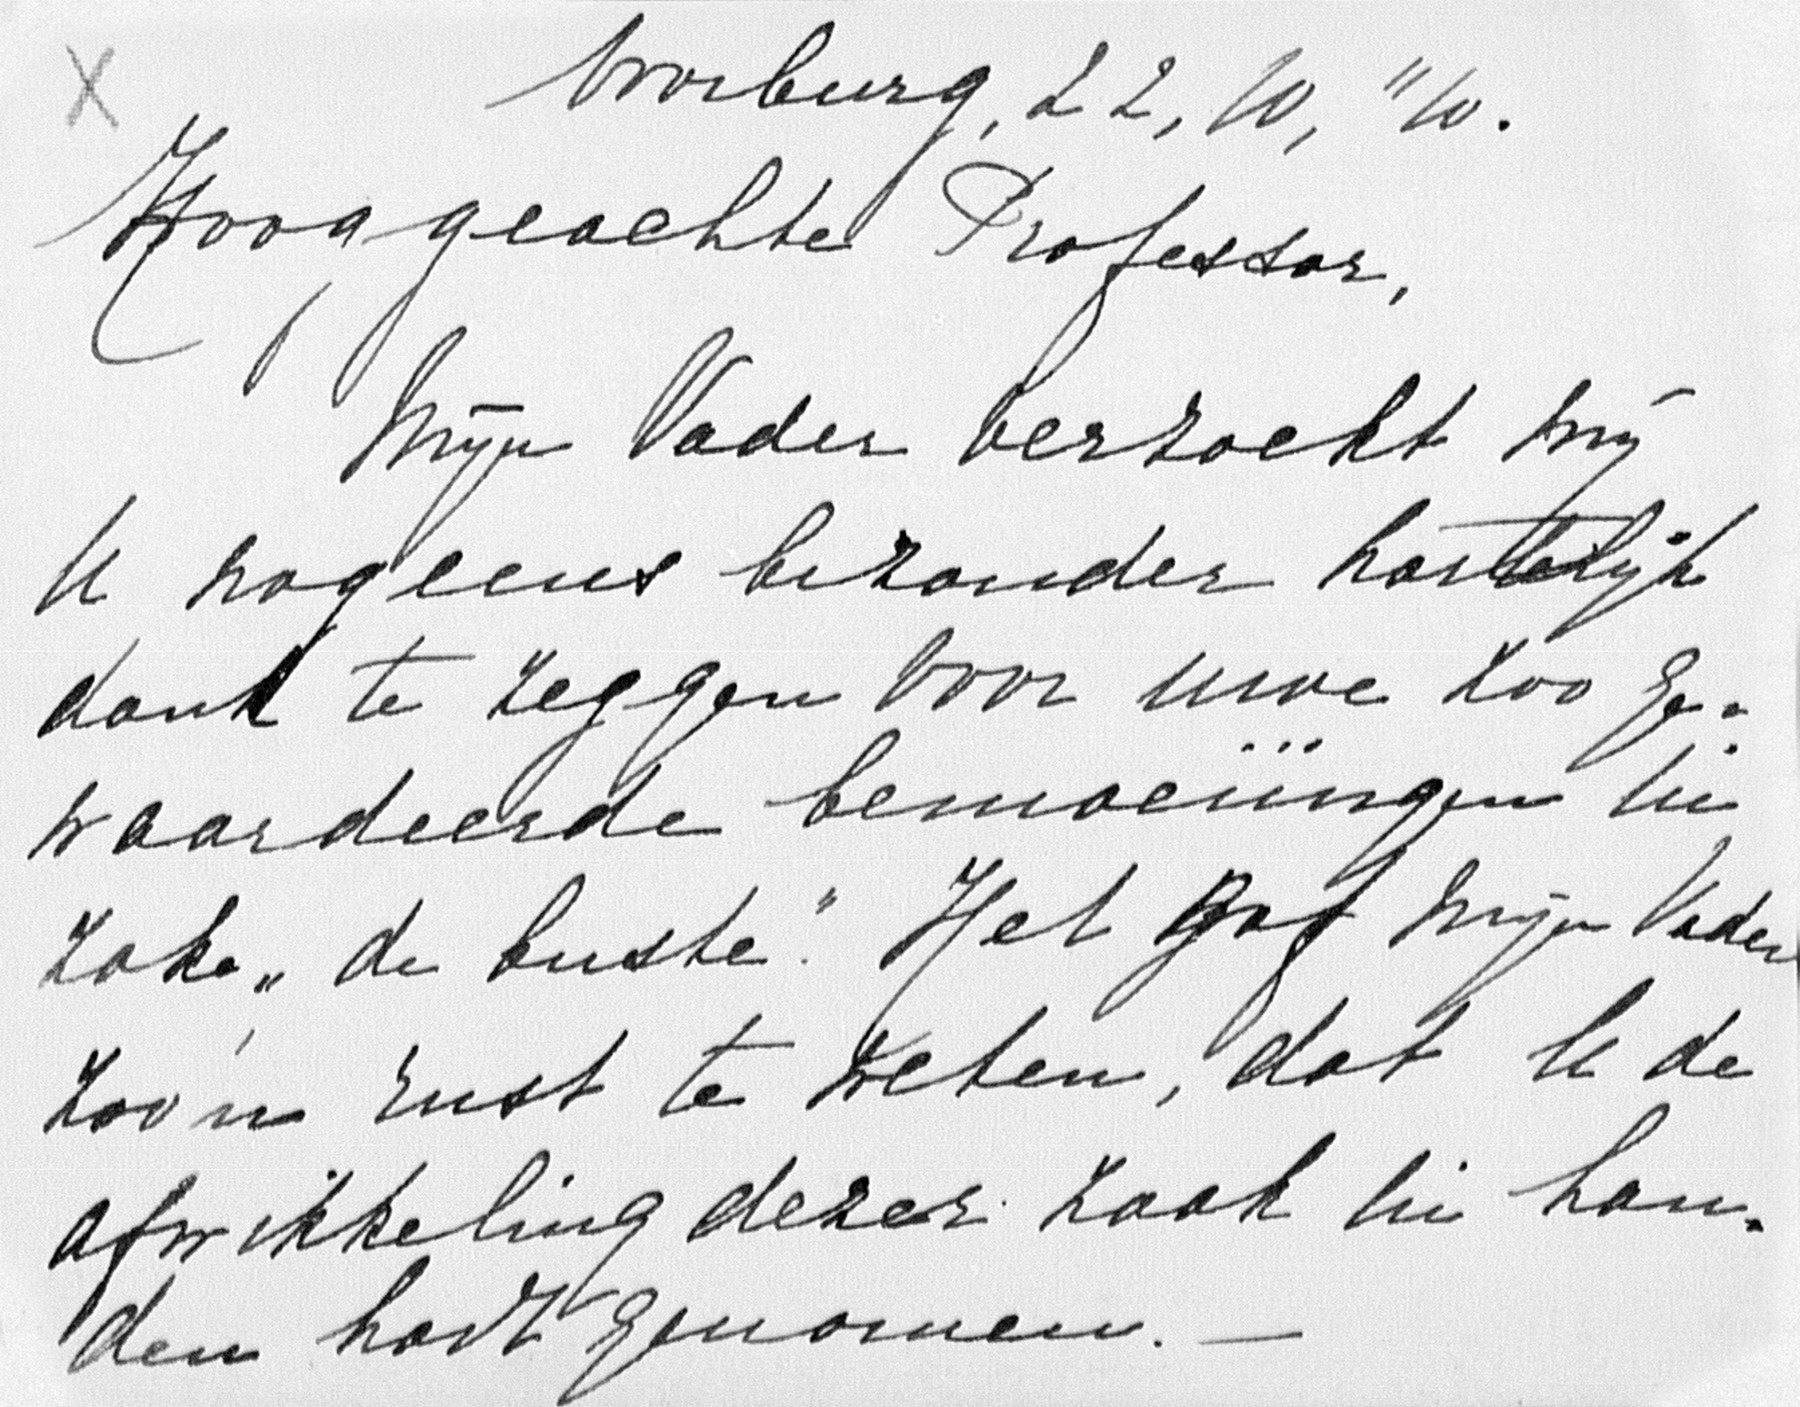 X
Voorburg, 22, 10, "10.
Hooggeachte Professor,
Mijn Vader verzocht mij
U nogeens bizonder hartelijk
dank te zeggen voor uwe zoo ge-
waardeerde bemoeiingen in
zake „de buste". Het gaf mijn Vader
zoo'n rust te weten, dat U de
afwikkeling dezer zaak in han-
den hadt genomen. —